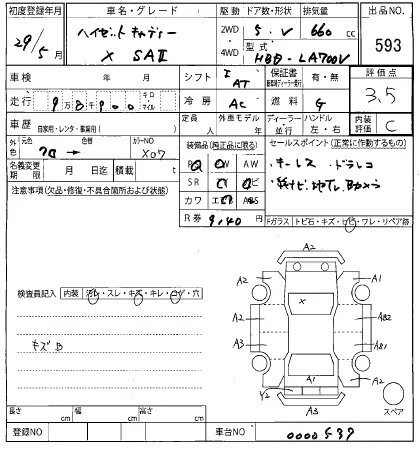 初度登録年月 車名・グレード 駆動 ドア数・形状 排気量 出品NO.
29/5月 ハイゼットキャディー 2WD 5.V 660 cc 593
X SAⅡ 4WD 型式 HBD-LA700V
車検 年 月 シフト I AT 保証書 有・無 評価点
走行 9万8千900 キロ マイル 冷房 AC 燃料 G 3.5
車歴 自家用・レンタ・事業用( ) 定員 人 外車モデル 年 ディーラー 並行 ハンドル 左・右 内装評価 C
外色 元色 色替 カラーNO 装備品(純正品に限る) セールスポイント(正常に動作するもの)
クロ → X07 AW ・キーレス ドラレコ
名義変更期限 月 日迄 積載 t SR ・ナビ 地デレ Bカメラ
注意事項(欠品・修復・不具合箇所および状態) カワ ABS
R券 9,140 円 Fガラス トビ石・キズ・ヒビ・ワレ・リペア跡
検査員記入 内装 汚れ・スレ・キズ・キレ・コゲ・穴
キズ B
A2
A2 A1
X
A2 AB2
A3 AB1
A1
Y2 A2
A3 スペア
長さ cm 幅 cm 高さ cm
登録NO 車台NO 0000539